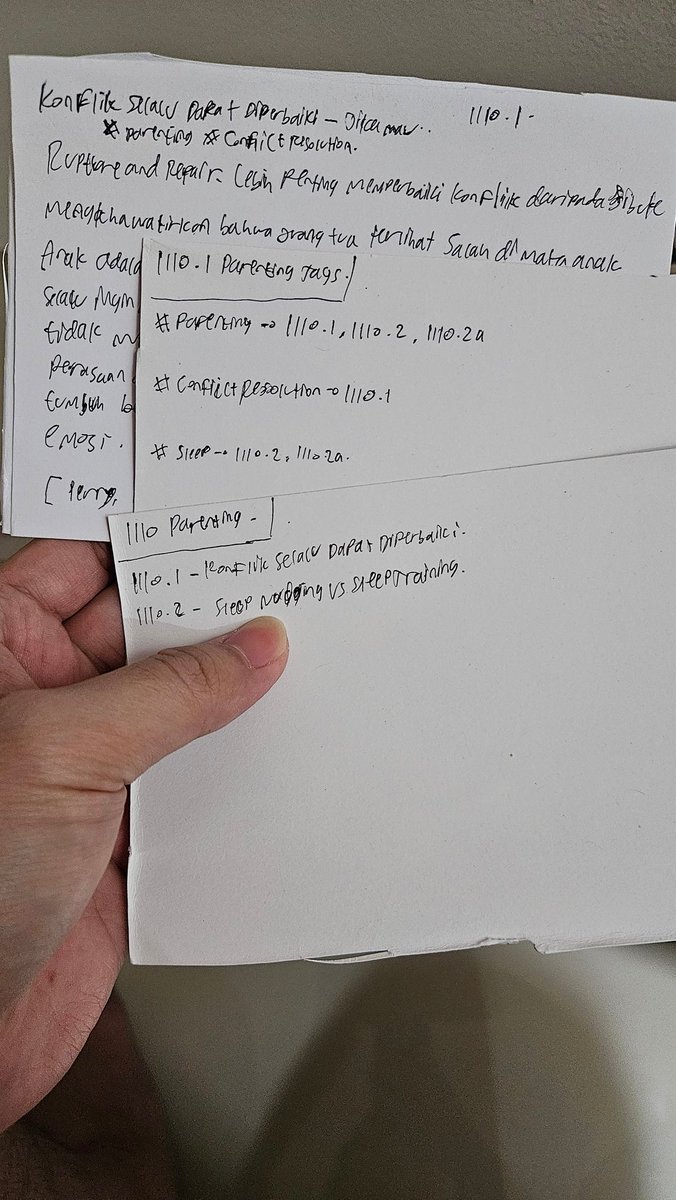 Konflik Selalu Dapat Diperbaiki – Jika mau.. 1110.1 -
# parenting # Conflict resolution.
Rupture and Repair. Lebih Penting memperbaiki Konflik daripada
mengkhawatirkan bahwa orang tua terlihat Salah di mata anak
Anak
Selalu
tidak
perasaan
tumbuh
emosi.
[
1110.1 Parenting Tags.
# Parenting → 1110.1, 1110.2, 1110.2a
# Conflict Resolution → 1110.1
# Sleep → 1110.2, 1110.2a.
1110 Parenting -
1110.1 - Konflik Selalu Dapat Diperbaiki.
1110.2 - Sleep Nudging vs Sleep Training.